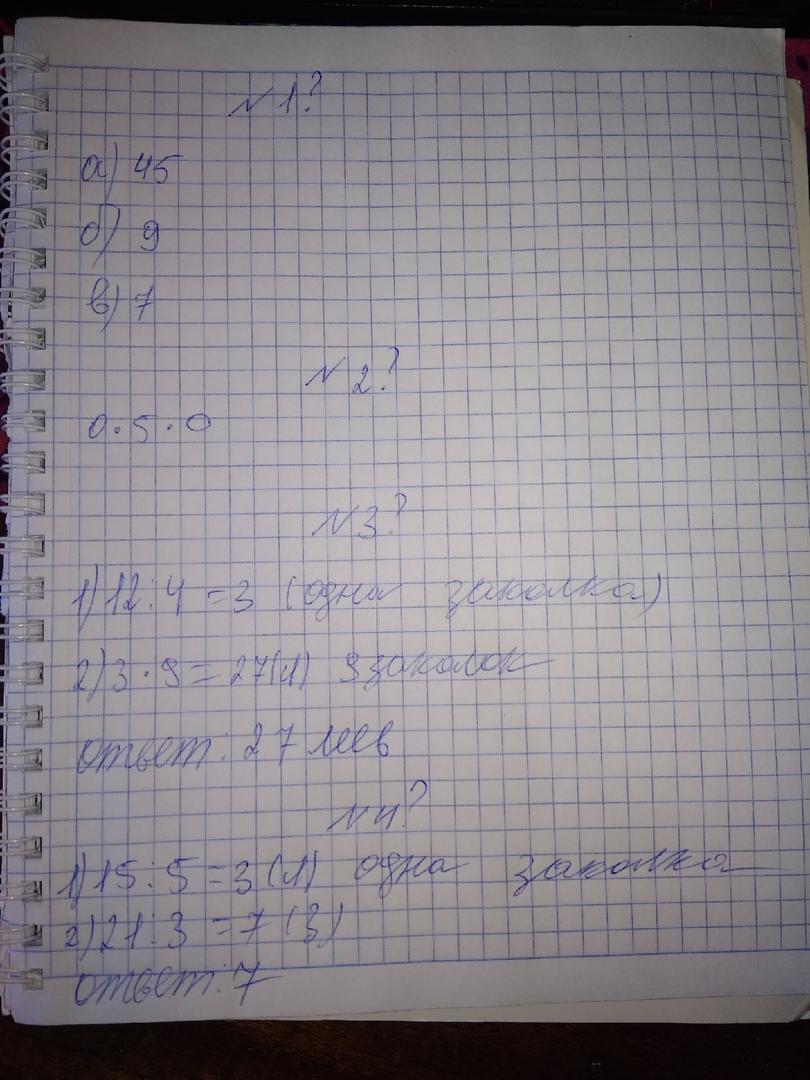 N1?
а) 45
б) 9
в) 7
N2?
0·5·0
N3?
1) 12:4=3 (одна заколка)
2) 3·9=27(л) 9 заколок
ответ: 27 леев
N4?
1) 15:5=3(л) одна заколка
2) 21:3=7(з)
ответ: 7